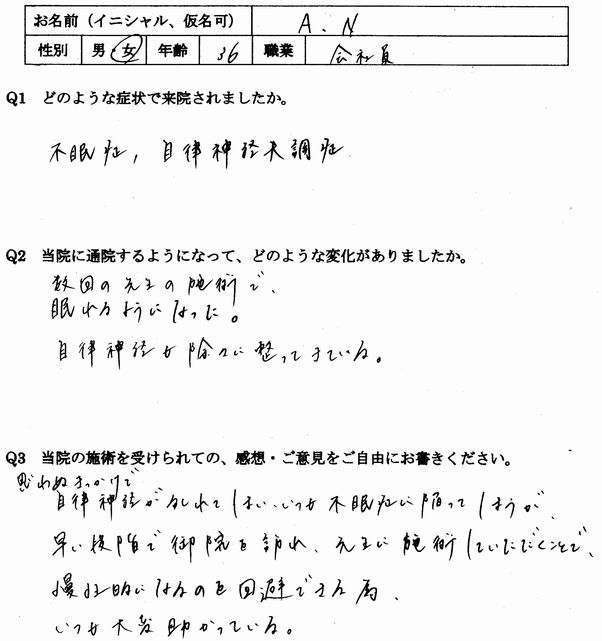 お名前（イニシャル、仮名可） A.N
性別 男・女 年齢 36 職業 会社員
Q1 どのような症状で来院されましたか。
不眠症，自律神経失調症
Q2 当院に通院するようになって、どのような変化がありましたか。
数回の先生の施術で、
眠れるようになった。
自律神経も除々に整ってきている。
Q3 当院の施術を受けられての、感想・ご意見をご自由にお書きください。
思わぬきっかけで
自律神経が乱れてしまい、いつも不眠症に陥ってしまうが、
早い段階で御院を訪れ、先生に施術していただくことで、
慢性的になるのを回避できる為、
いつも大変助かっている。